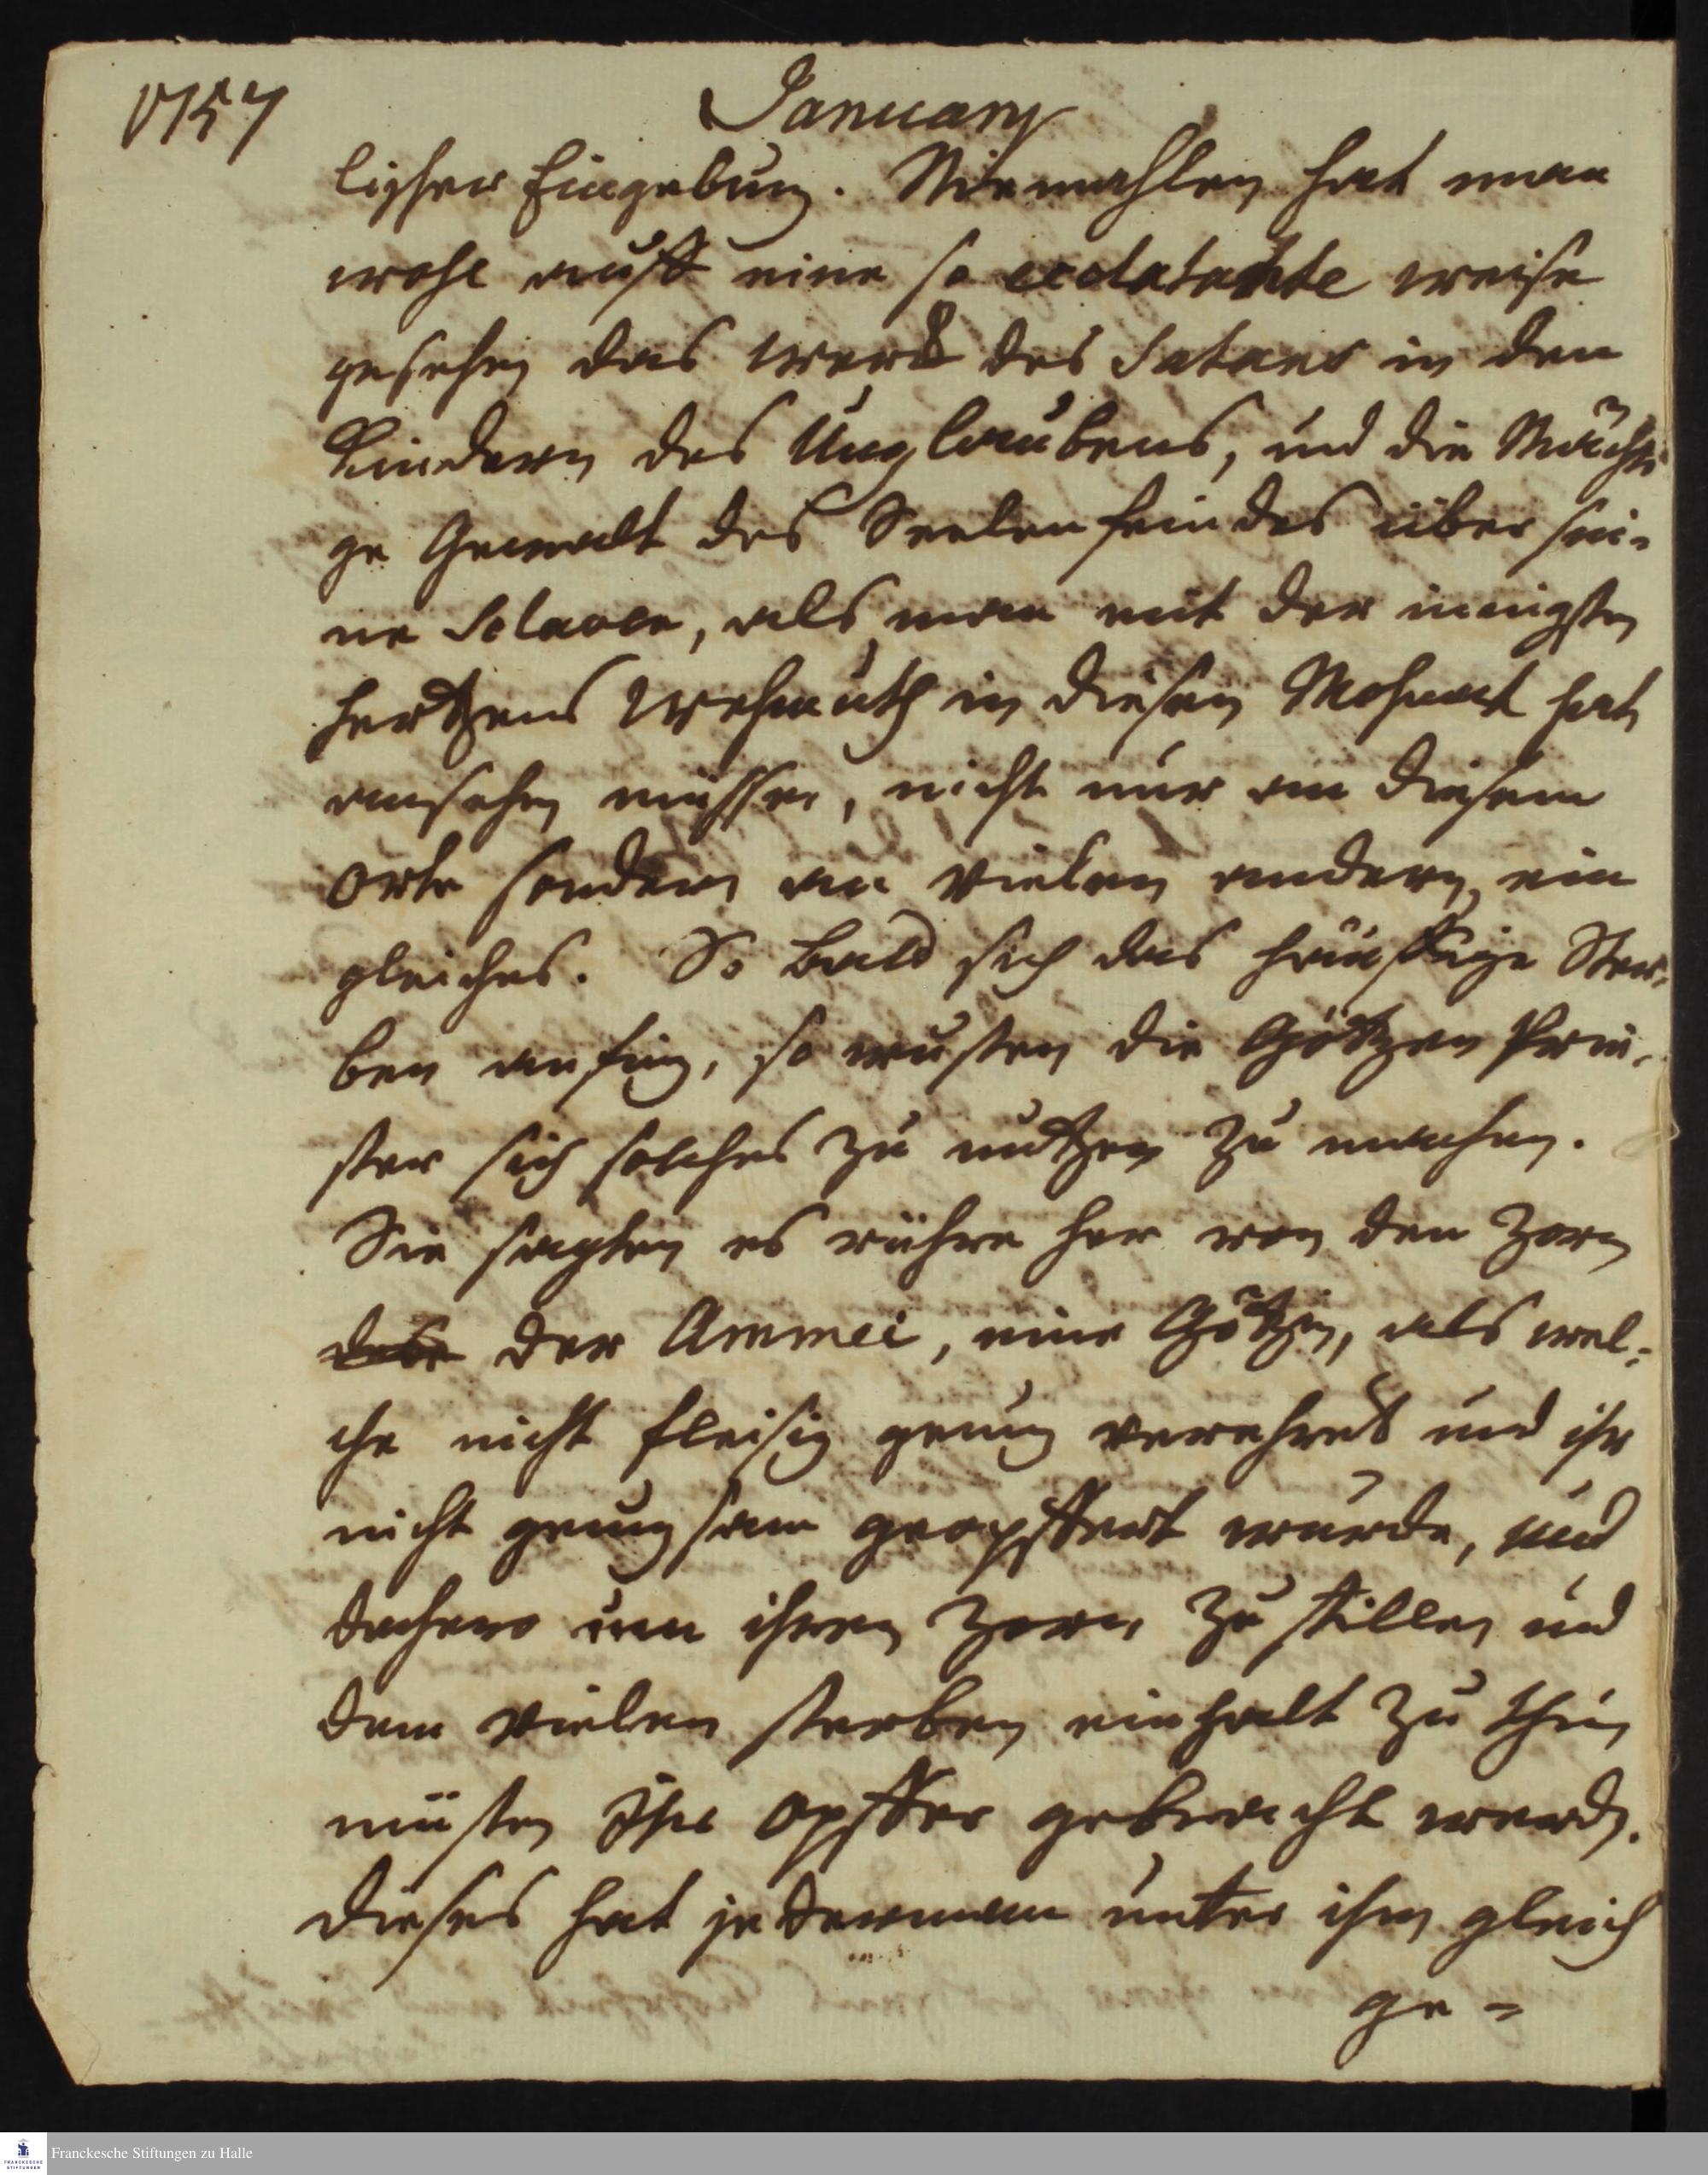 1757
January
licher Eingebung. Niemahlen hat man
wohl auff eine so ecclatante weise
gesehen das werck des Satans in den
Kindern des Unglaubens, und die Mächti
ge Gewalt des Seelenfeindes über sei-
ne Sclaven, als man mit der innigsten
hertzens Wehmuth in diesen Mohnat hat
ansehen müssen, nicht nur an diesem
orte sondern an vielen andern, ein
gleiches. So bald sich das häuffige Ster-
ben anfing, so wusten die Götzen Prie-
ster sich solches zu nutzen zu machen.
Sie sagten es rühre her von den Zorn
der Ammei, eine Götzin, als wel-
che nicht fleisig genug verehret und ihr
nicht genugsam geopffert würde, und
dahero um ihren Zorn zu stillen und
dem vielen sterben einhalt zu thun
müsten Ihr opffer gebracht werden.
Dieses hat jederman unter ihnen gleich
ge-
Franckesche Stiftungen zu Halle